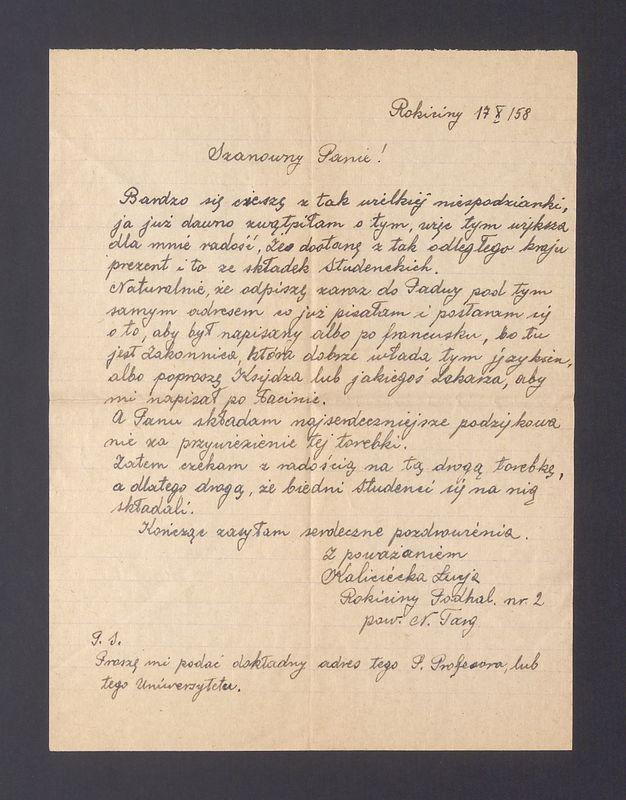 Rokiciny 17 X /58
Szanowny Panie!
Bardzo się cieszę z tak wielkiéj niespodzianki,
ja już dawno zwątpiłam o tym, więc tym większa
dla mnie radość, że dostanę z tak odległego kraju
prezent i to ze składek Studenckich.
Naturalnie, że odpiszę zaraz do Paduy pod tym
samym adresem co już pisałam i postaram się
o to, aby był napisany albo po francusku, bo tu
jest Zakonnica, która dobrze włada tym językiem,
albo poproszę Księdza lub jakiegoś Lekarza, aby
mi napisał po Łacinie.
A Panu składam najserdeczniejsze podziękowa
nie za przywiezienie tej torebki.
Zatem czekam z radością na tą drogą torebkę,
a dlatego drogą, że biedni Studenci się na nią
składali.
Kończąc zasyłam serdeczne pozdrowienia.
Z poważaniem
Kaliciécka Łucja
Rokiciny Podhal. nr. 2
pow. N. Targ
P. S.
Proszę mi podać dokładny adres tego P. Profesora, lub
tego Uniwersytetu.